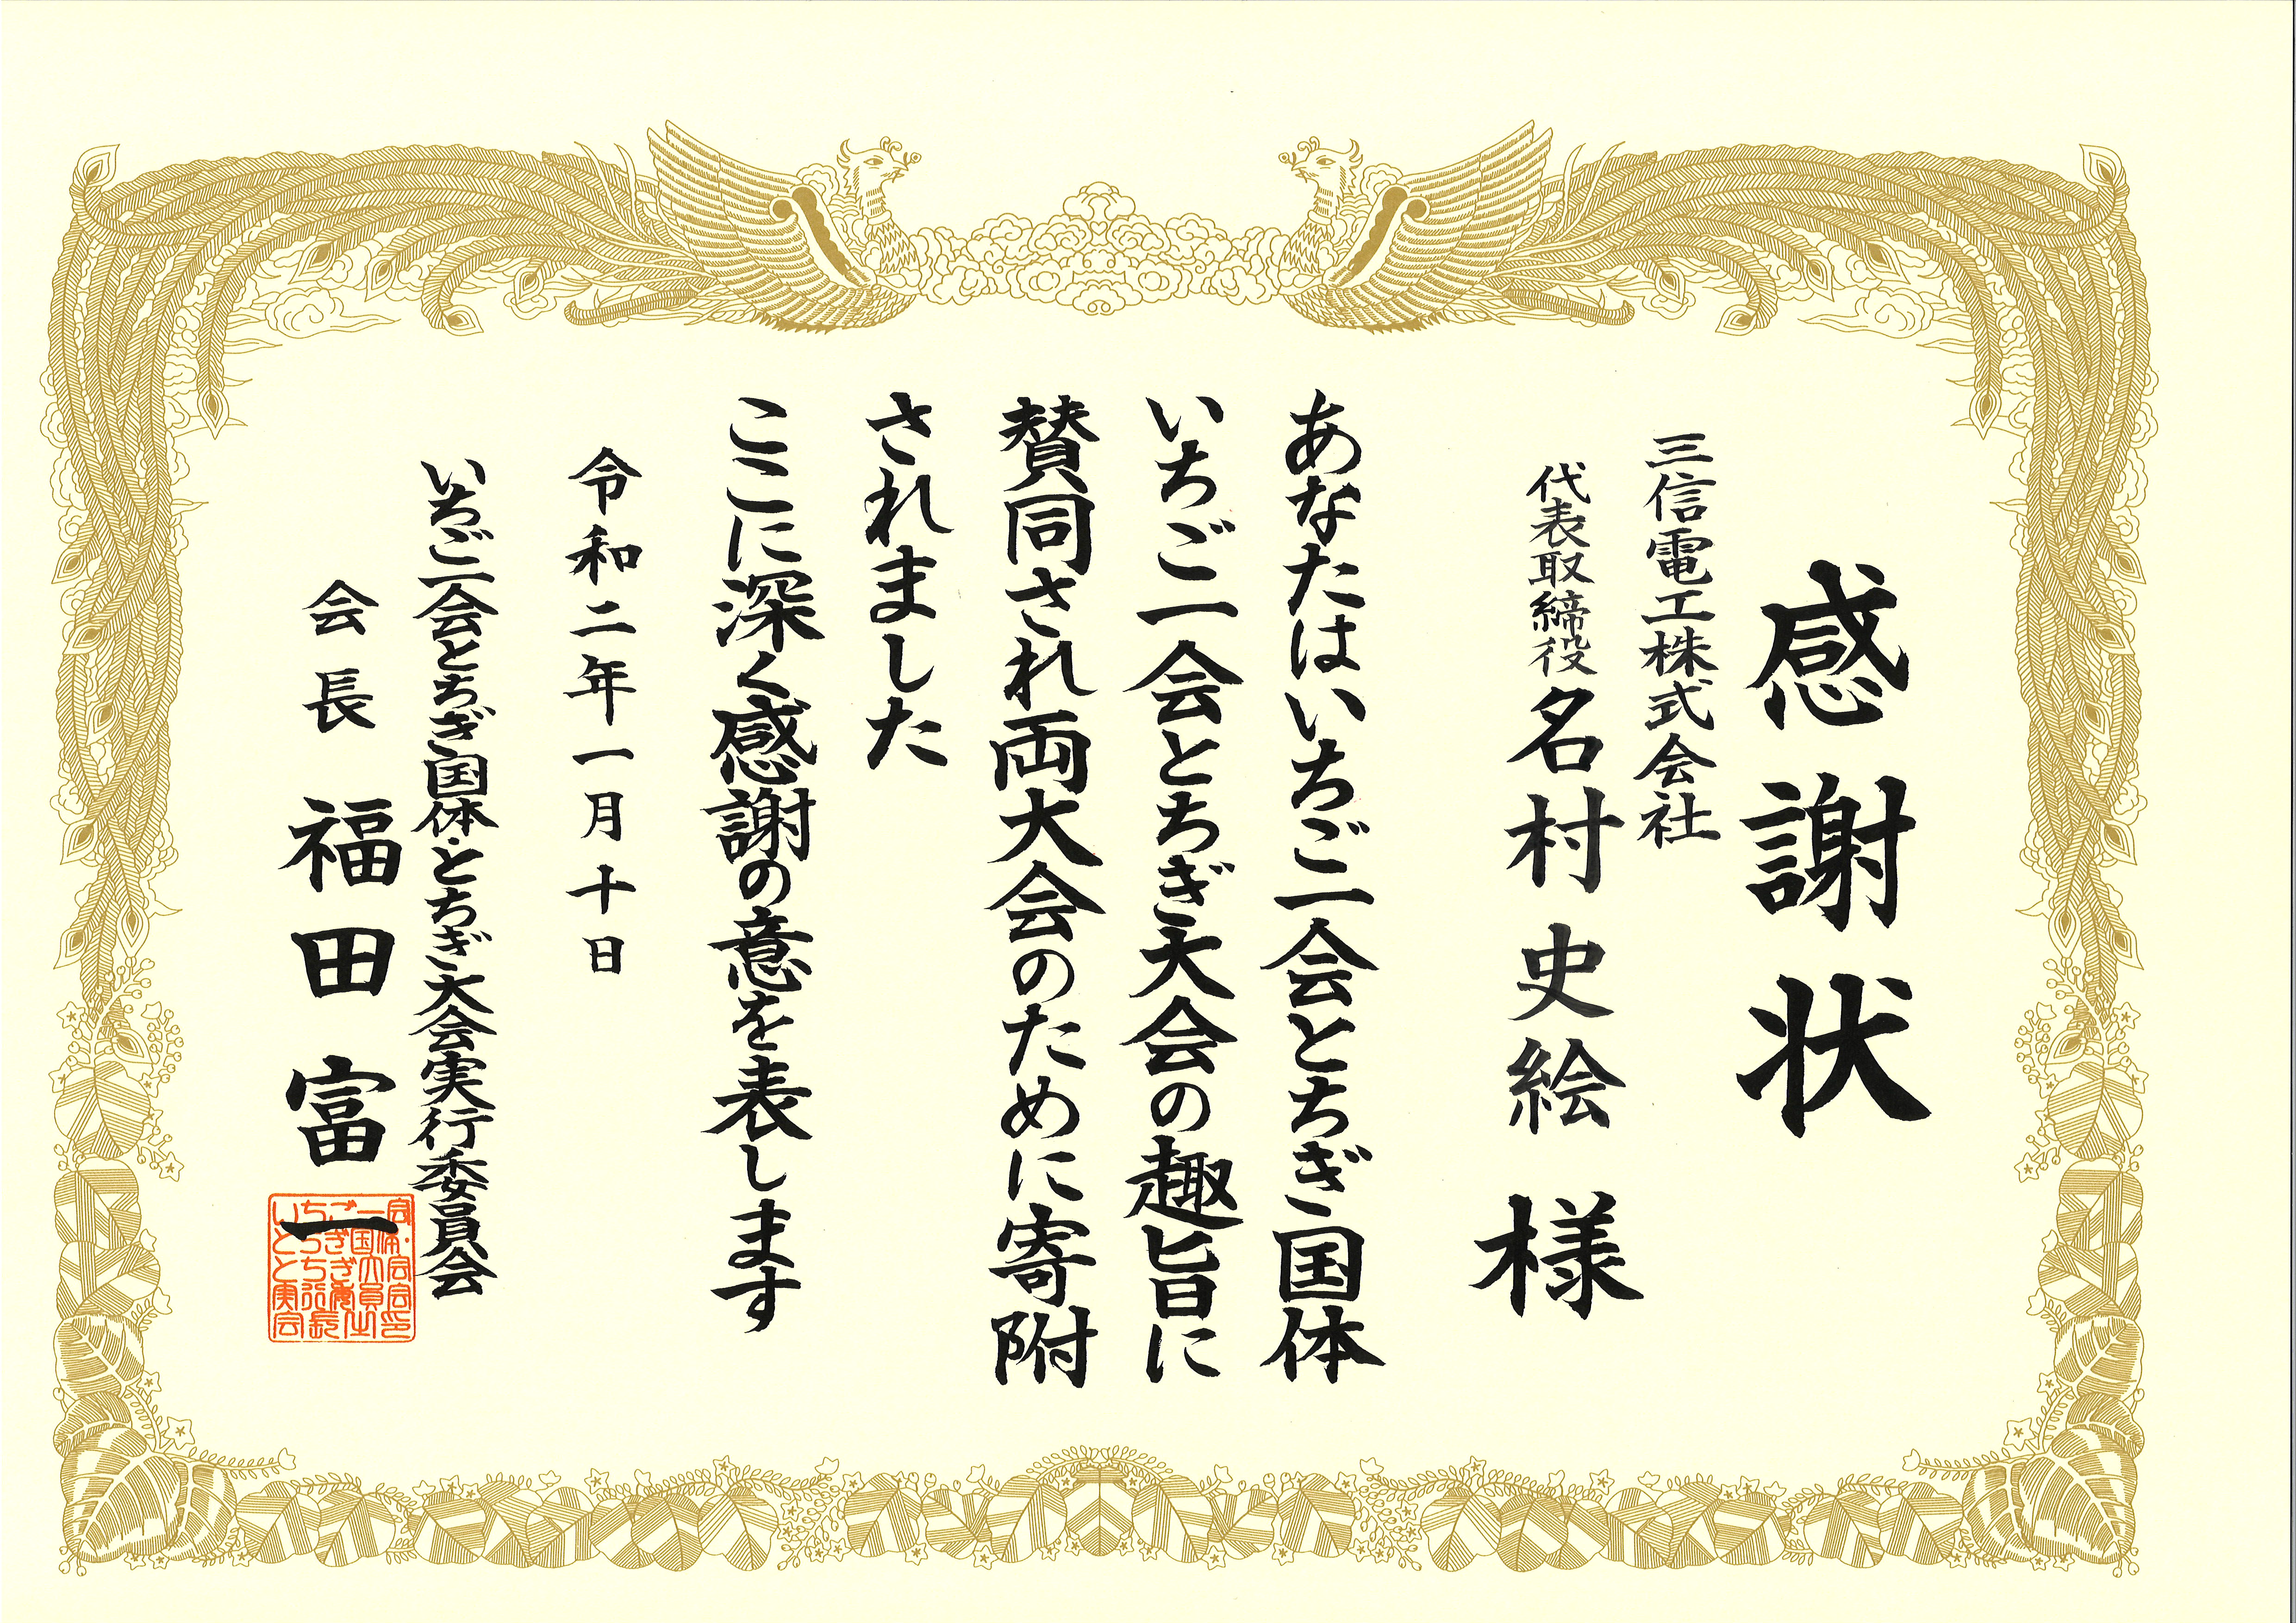 感謝状
三信電工株式会社
代表取締役 名村史絵 様
あなたはいちご一会とちぎ国体
いちご一会とちぎ大会の趣旨に
賛同され両大会のために寄附
されました
ここに深く感謝の意を表します
令和二年一月十日
いちご一会とちぎ国体・とちぎ大会実行委員会
会長 福田富一